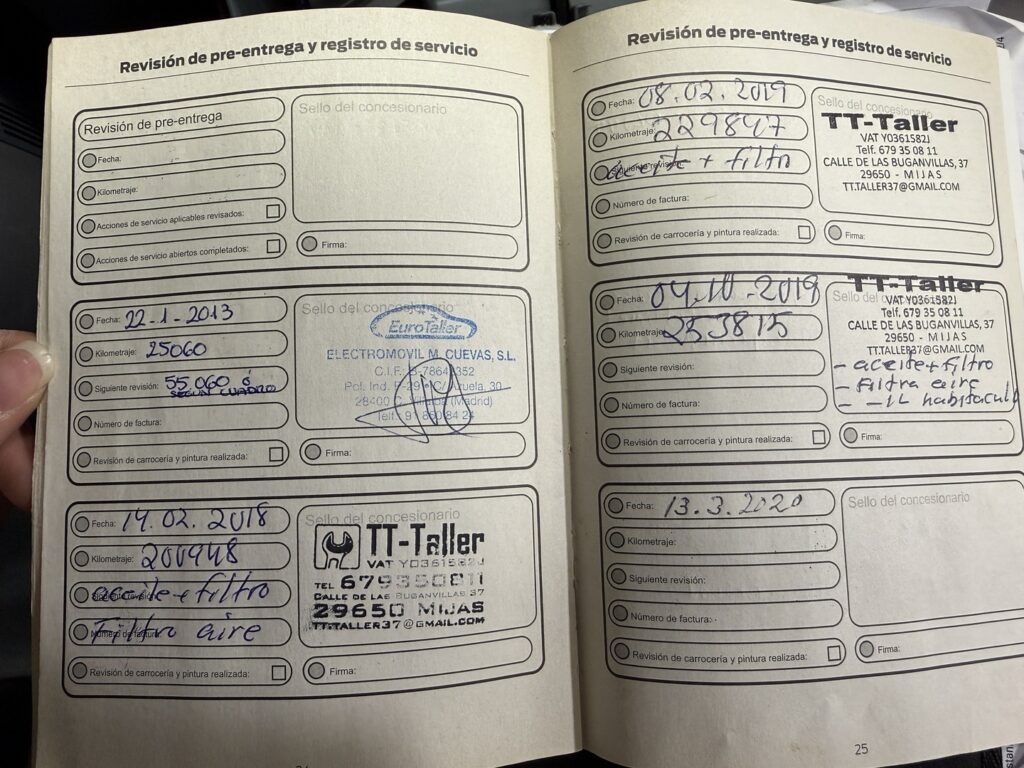 Revisión de pre-entrega y registro de servicio
Revisión de pre-entrega
Fecha:
Kilometraje:
Acciones de servicio aplicables revisados:
Acciones de servicio abiertos completados:
Sello del concesionario
Firma:
Fecha: 22-1-2013
Kilometraje: 25060
Siguiente revisión: 55.060 ó
SEGUN CUADRO
Número de factura:
Revisión de carrocería y pintura realizada:
Sello del concesionario
EuroTaller
ELECTROMOVIL M. CUEVAS, S.L.
C.I.F.:
Pol. Ind. P-29 C/ Azuela, 30
28400 C. Villalba (Madrid)
Telf. 91 850 84 24
Firma:
Fecha: 14.02.2018
Kilometraje: 200948
Siguiente revisión: aceite + filtro
Número de factura: Filtro aire
Revisión de carrocería y pintura realizada:
Sello del concesionario
TT-Taller
VAT Y0361582J
TEL 679350811
CALLE DE LAS BUGANVILLAS 37
29650 MIJAS
TT.TALLER37@GMAIL.COM
Firma:
Revisión de pre-entrega y registro de servicio
Fecha: 08.02.2019
Kilometraje: 229847
Siguiente revisión: aceite + filtro
Número de factura:
Revisión de carrocería y pintura realizada:
Sello del concesionario
TT-Taller
VAT Y0361582J
Telf. 679 35 08 11
CALLE DE LAS BUGANVILLAS, 37
29650 - MIJAS
TT.TALLER37@GMAIL.COM
Firma:
Fecha: 04.10.2019
Kilometraje: 253815
Siguiente revisión:
Número de factura:
Revisión de carrocería y pintura realizada:
Sello del concesionario
TT-Taller
VAT Y0361582J
Telf. 679 35 08 11
CALLE DE LAS BUGANVILLAS, 37
29650 - MIJAS
TT.TALLER37@GMAIL.COM
- aceite + filtro
- Filtra aire
- -IL habitacul
Firma:
Fecha: 13.3.2020
Kilometraje:
Siguiente revisión:
Número de factura:
Revisión de carrocería y pintura realizada:
Sello del concesionario
Firma:
25